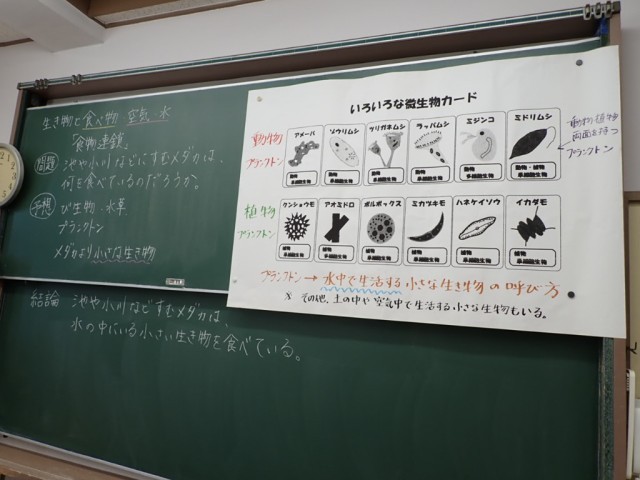 生き物と食べ物 空気 水
「食物連鎖」
問題 池や小川などにすむメダカは、
何を食べているのだろうか。
予想 び生物・水草
プランクトン
メダカより小さな生き物
結論 池や小川などすむメダカは、
水の中にいる小さい生き物を食べている。
いろいろな微生物カード
動物
プランクトン
アメーバ ゾウリムシ ツリガネムシ ラッパムシ ミジンコ ミドリムシ
動物 動物 動物 動物 動物 動物・植物
単細胞生物 単細胞生物 単細胞生物 単細胞生物 多細胞生物 単細胞生物
動物・植物
両面を持つ
プランクトン
植物
プランクトン
クンショウモ アオミドロ ボルボックス ミカヅキモ ハネケイソウ イカダモ
植物 植物 植物 植物 植物 植物
プランクトン→水中で生活する小さな生き物の呼び方
※ その他、土の中や空気中で生活する小さな生物もいる。